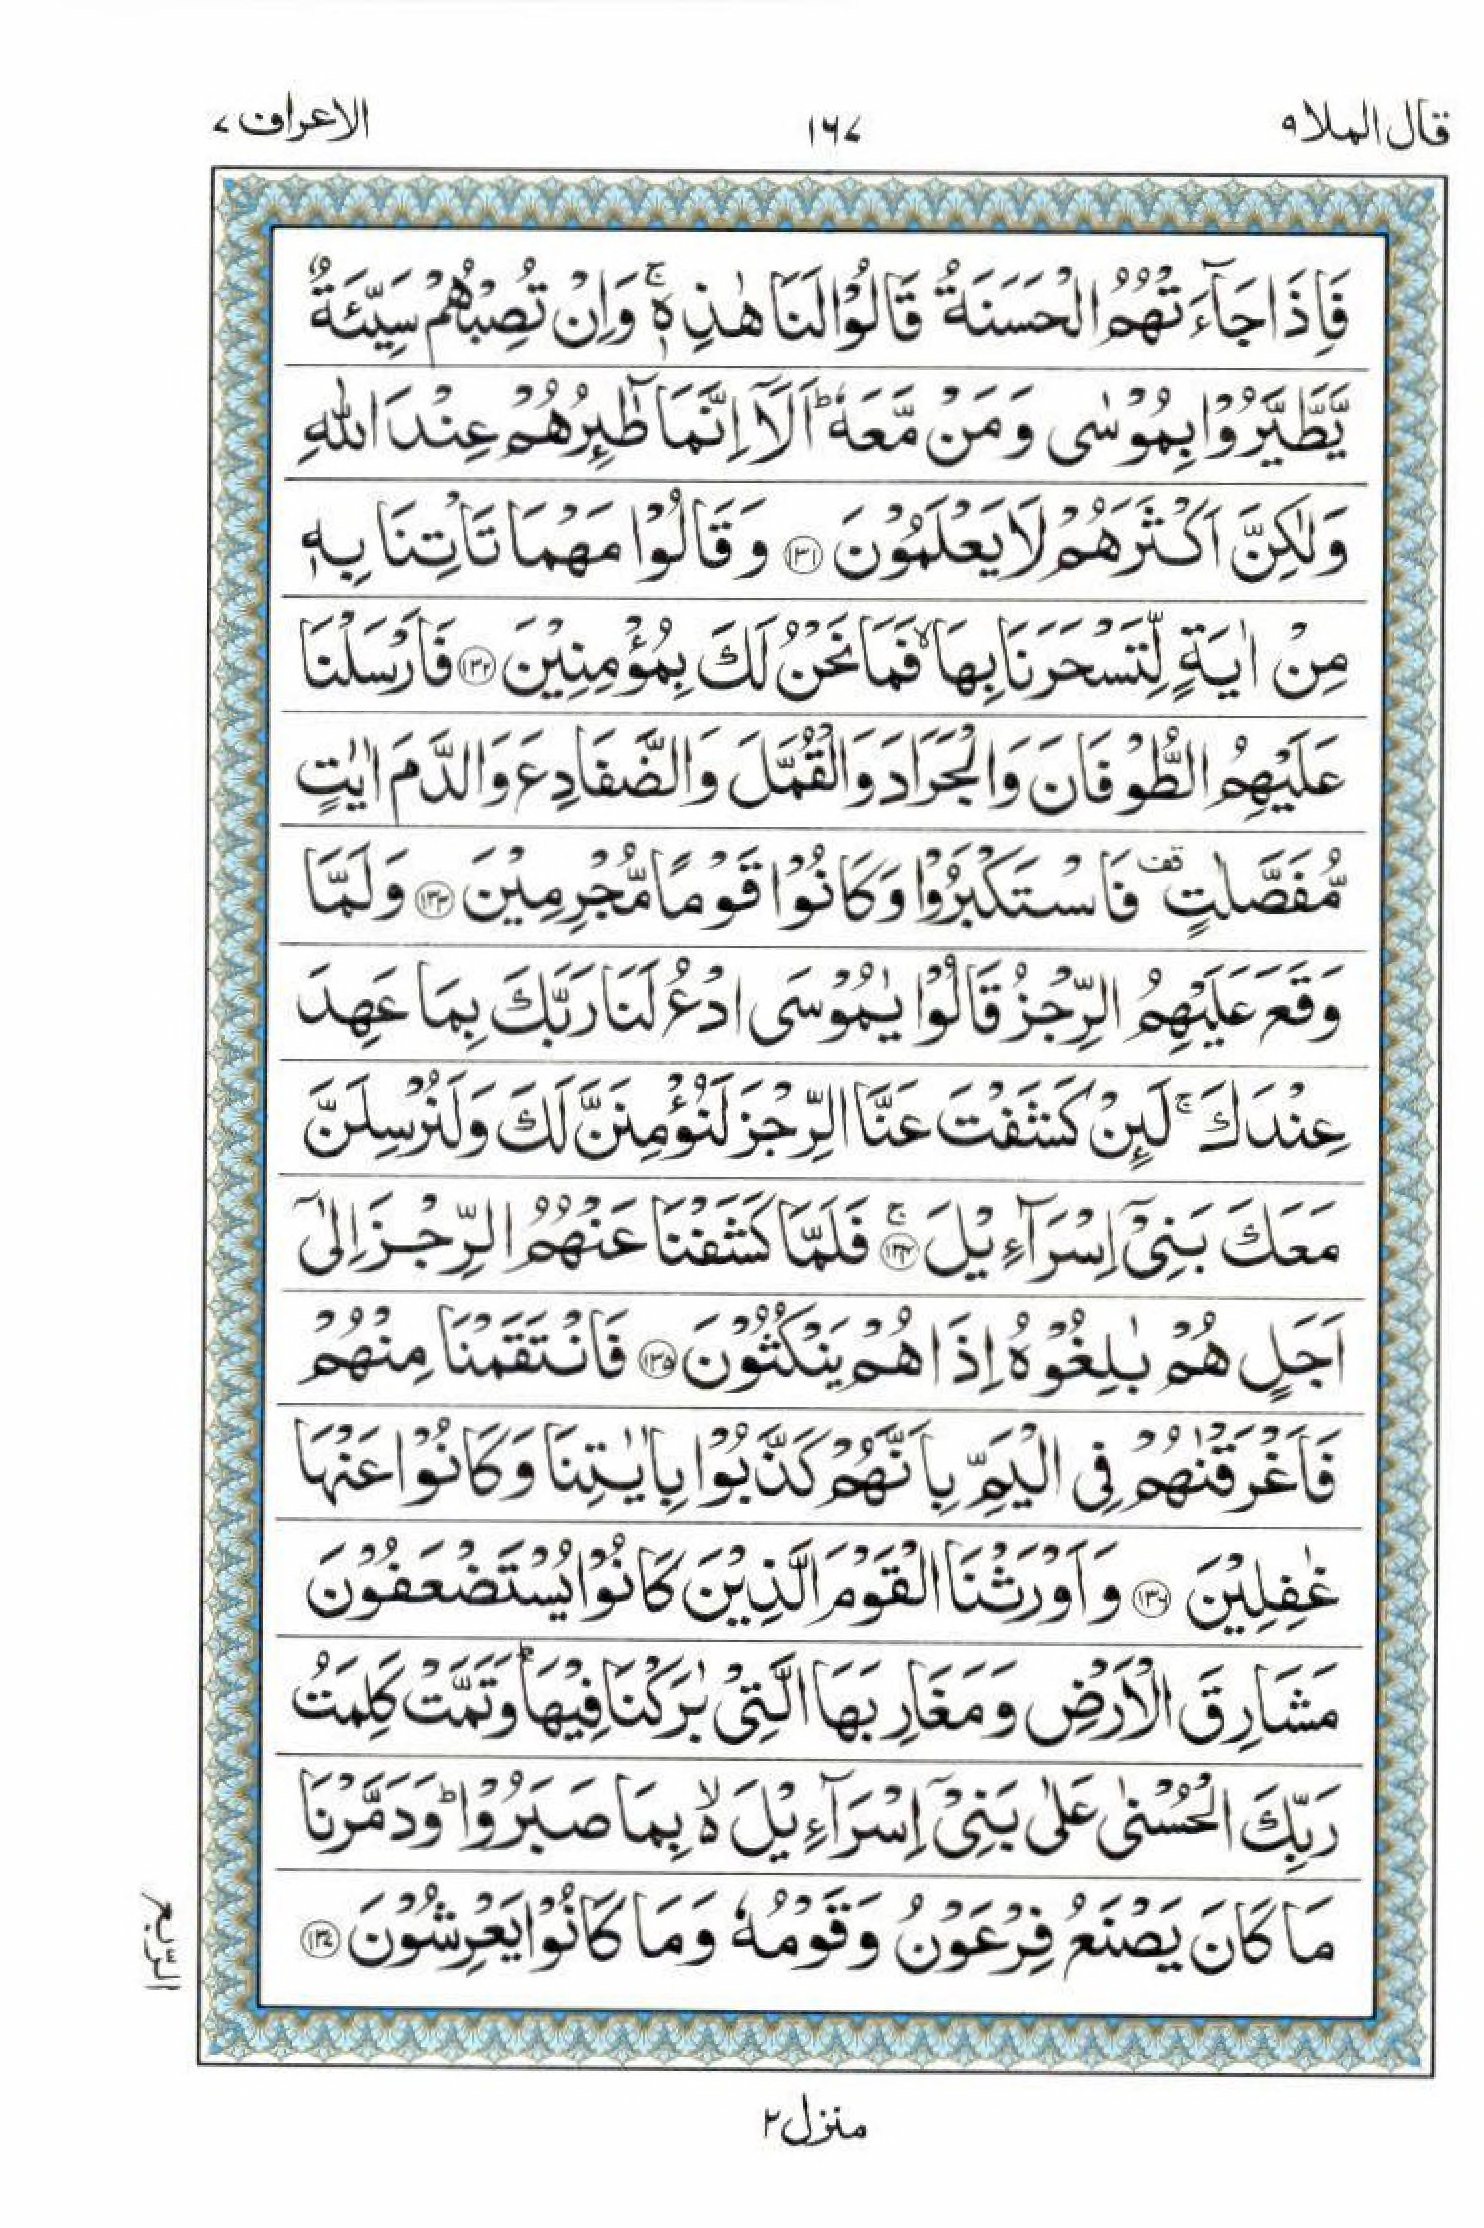 قال الملا ٩
١٦٧
الاعراف ٧
فَاِذَا جَآءَتْهُمُ الْحَسَنَةُ قَالُوْا لَنَا هٰذِهٖ ۚ وَاِنْ تُصِبْهُمْ سَيِّئَةٌ
يَّطَّيَّرُوْا بِمُوْسٰى وَمَنْ مَّعَهٗ ؕ اَلَاۤ اِنَّمَا طٰٓئِرُهُمْ عِنْدَ اللّٰهِ
وَلٰكِنَّ اَكْثَرَهُمْ لَا يَعْلَمُوْنَ ﴿١٣١﴾ وَقَالُوْا مَهْمَا تَاْتِنَا بِهٖ
مِنْ اٰيَةٍ لِّتَسْحَرَنَا بِهَا ۙ فَمَا نَحْنُ لَكَ بِمُؤْمِنِيْنَ ﴿١٣٢﴾ فَاَرْسَلْنَا
عَلَيْهِمُ الطُّوْفَانَ وَالْجَرَادَ وَالْقُمَّلَ وَالضَّفَادِعَ وَالدَّمَ اٰيٰتٍ
مُّفَصَّلٰتٍ قف فَاسْتَكْبَرُوْا وَكَانُوْا قَوْمًا مُّجْرِمِيْنَ ﴿١٣٣﴾ وَلَمَّا
وَقَعَ عَلَيْهِمُ الرِّجْزُ قَالُوْا يٰمُوْسَى ادْعُ لَنَا رَبَّكَ بِمَا عَهِدَ
عِنْدَكَ ۚ لَئِنْ كَشَفْتَ عَنَّا الرِّجْزَ لَنُؤْمِنَنَّ لَكَ وَلَنُرْسِلَنَّ
مَعَكَ بَنِيْۤ اِسْرَآءِيْلَ ﴿١٣٤﴾ۚ فَلَمَّا كَشَفْنَا عَنْهُمُ الرِّجْزَ اِلٰۤى
اَجَلٍ هُمْ بٰلِغُوْهُ اِذَا هُمْ يَنْكُثُوْنَ ﴿١٣٥﴾ فَانْتَقَمْنَا مِنْهُمْ
فَاَغْرَقْنٰهُمْ فِى الْيَمِّ بِاَنَّهُمْ كَذَّبُوْا بِاٰيٰتِنَا وَكَانُوْا عَنْهَا
غٰفِلِيْنَ ﴿١٣٦﴾ وَاَوْرَثْنَا الْقَوْمَ الَّذِيْنَ كَانُوْا يُسْتَضْعَفُوْنَ
مَشَارِقَ الْاَرْضِ وَمَغَارِبَهَا الَّتِيْ بٰرَكْنَا فِيْهَا ؕ وَتَمَّتْ كَلِمَتُ
رَبِّكَ الْحُسْنٰى عَلٰى بَنِيْۤ اِسْرَآءِيْلَ ۙ بِمَا صَبَرُوْا ؕ وَدَمَّرْنَا
مَا كَانَ يَصْنَعُ فِرْعَوْنُ وَقَوْمُهٗ وَمَا كَانُوْا يَعْرِشُوْنَ ﴿١٣٧﴾
الرّبع
منزل ٢